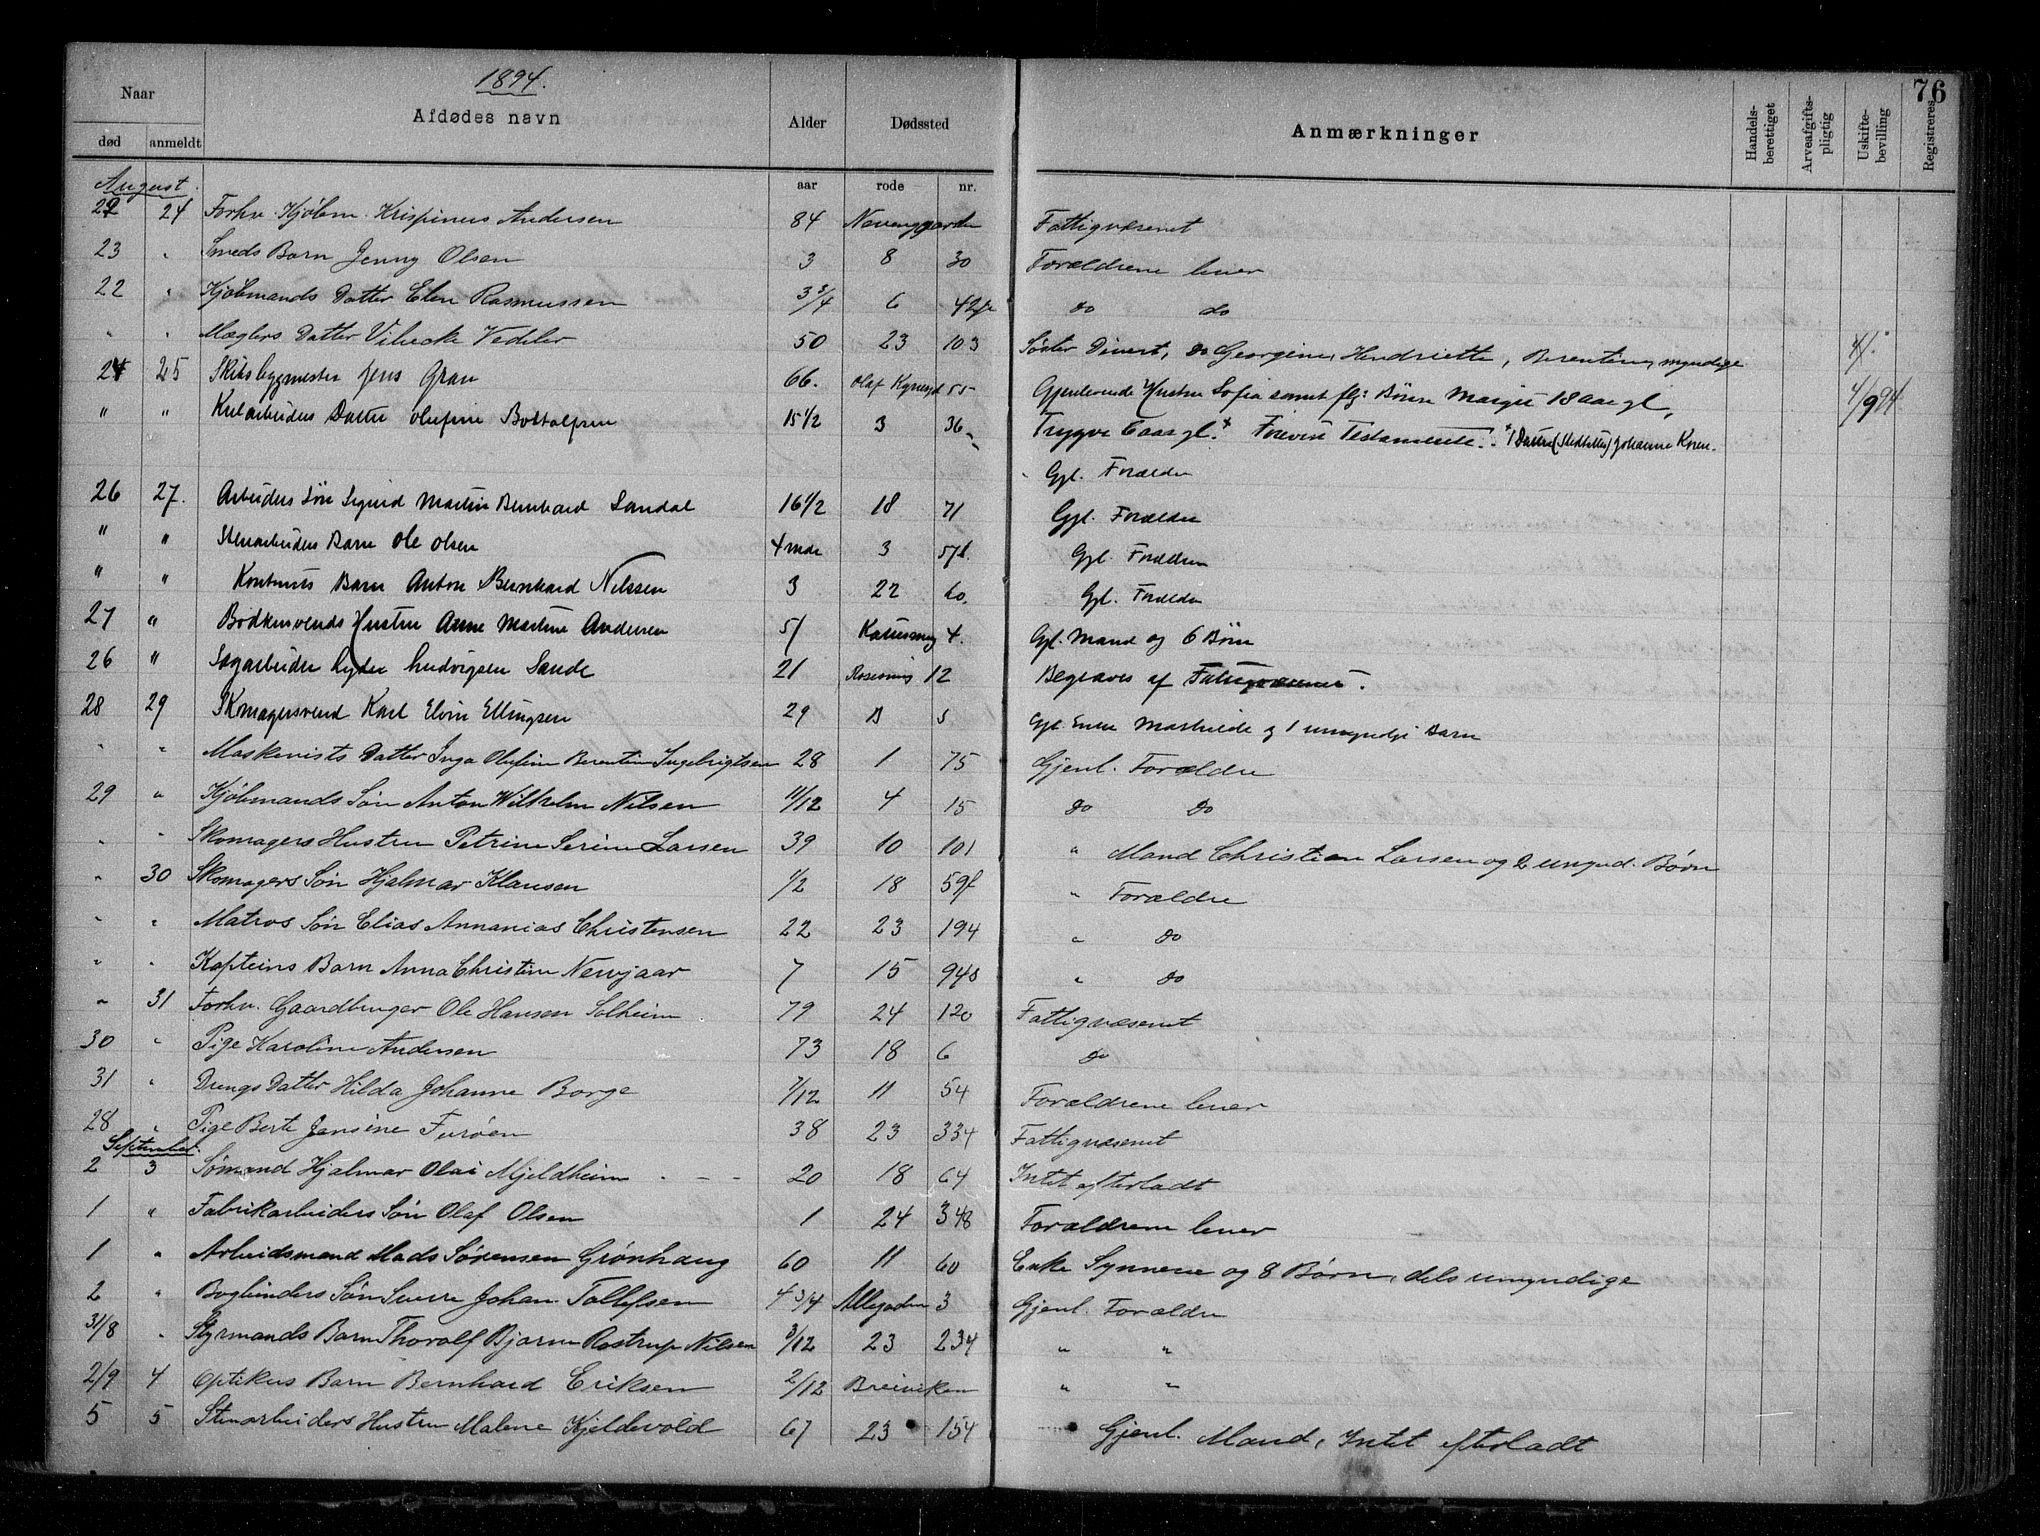 76
1894.
Naar
Afdødes navn
Alder
Dødssted
Anmærkninger
Handels-berettiget
Arveafgifts-pligtig
Uskifte-bevilling
Registreres
død anmeldt
aar rode nr.
August.
22 24 Forhv. Kjøbm. Krispinus Andersen 84 Fattigvæsenet
23 " Smeds Barn Jenny Olsen 3 8 30 Forældrene lever
22 " Kjøbmands Datter Elen Rasmussen 3 3/4 6 42 do do
" " Mæglers Datter Vibecke Vedeler 50 23 103 Søster Divert, do Georgine, Henriette, Berentine, myndige
24 25 Skibsbygmester Jens Gran 66. Olaf Kyrresgd 55 Gjenlevende Hustru Sofia samt flg: Børn Margit 18 aar gl, 4/9 94
" " Datter Olufine Bottolfsen 15 1/2 3 36 Trygve 6 aar gl. Testamente. Datter (Stedatter) Johanne Koren.
Gjl. Forældre
26 27. Arbeiders Søn Sigurd Martin Bernhard Sandal 16 1/2 18 71 Gjl. Forældre
" " Stenarbeiders Barn Ole Olsen 4 mdr 3 57 Gjl. Forældre
" " Barn Anton Bernhard Nilssen 3 22 60. Gjl. Forældre
27 " Bødkersvends Hustru Anne Martine Andersen 51 4. Gjl. Mand og 6 Børn
26 " Sagarbeider Lyder Ludvigsen Sande 21 12 Begraves af Fattigvæsenet.
28 29 Skomagersvend Karl Elvin Ellingsen 29 5 Gjl Enke Mathilde og 1 umyndigt Barn
" " Maskinists Datter Inga Olufine Berentine Ingebrigtsen 28 1 75 Gjenl. Forældre
29 " Kjøbmands Søn Anton Wilhelm Nilsen 11/12 4 15 do do
" " Skomagers Hustru Petrine Serine Larsen 39 10 101 " Mand Christian Larsen og 2 umynd. Børn
" 30 Skomagers Søn Hjalmar Klausen 1/2 18 59f " Forældre
" " Matros Søn Elias Annanias Christensen 22 23 194 " do
" " Kapteins Barn Anna Christine Newjaar 7 15 94 " do
" 31 Forhv. Gaardbruger Ole Hansen Solheim 79 24 120 Fattigvæsenet
30 " Pige Karoline Andersen 73 18 6 do
31 " Drengs Datter Hilda Johanne Borge 7/12 11 54 Forældrene lever
28 " Pige Berte Jensine Furøen 38 23 334 Fattigvæsenet
September.
2 3 Sømand Hjalmar Olai Mjeldheim 20 18 64 Intet efterladt
1 " Fabrikarbeiders Søn Olaf Olsen 1 24 348 Forældrene lever
1 " Arbeidsmand Mads Sørensen Grønhaug 60 11 60 Enke Synneve og 8 Børn, dels umyndige
2 " Bogbinders Søn Sverre Johan Tollefsen 4 3/4 Allegaden 3 Gjenl. Forældre
31/8 " Styrmands Barn Thorolf Bjarne Rostrup Nilsen 3/12 23 234 " "
2/9 4 Optikus Barn Bernhard Eriksen 2/12 Breiviken " "
5 5 Stenarbeiders Hustru Malene Kjeldevold 67 23 154 Gjenl. Mand, Intet efterladt